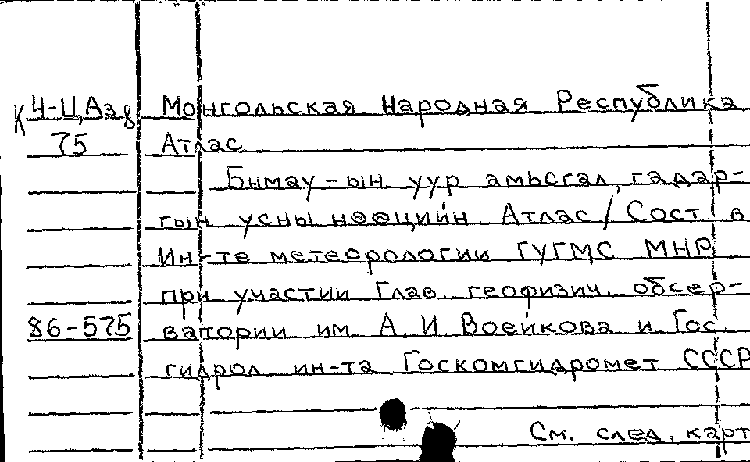 К Ч-Ц,Аз8 Монгольская Народная Республика
75 Атлас
Бнмау-ын уур амьсгал, гадар-
гын усны нөөцийн Атлас / Сост в
Ин-те метеорологии ГУГМС МНР
при участии Глав. геофизич. обсер-
86-575 ватории им А И Воейкова и Гос
гидрол ин-та Госкомгидромет СССР
См. след. карт